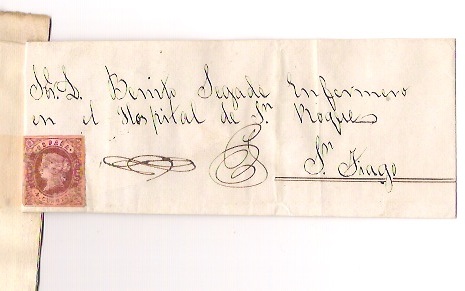 Sr. D. Benito Segade Enfermero
en el Hospital de Sn. Roque
S.n Tiago